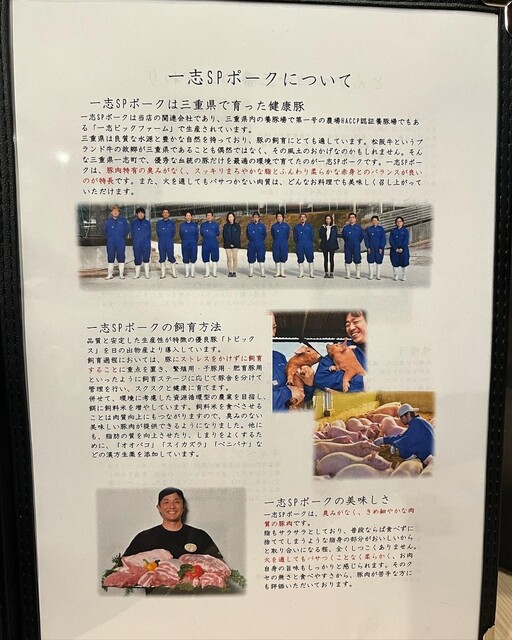 一志SPポークについて
一志SPポークは三重県で育った健康豚
一志SPポークは当店の関連会社であり、三重県内の養豚場で第一号の農場HACCP認証養豚場でもあ
る「一志ピックファーム」で生産されています。
三重県は良質な水源と豊かな自然を持っており、豚の飼育にとても適しています。松阪牛というブ
ランド牛の故郷が三重県であることも偶然ではなく、その風土のおかげなのかもしれません。そん
な三重県一志町で、優秀な血統の豚だけを最適の環境で育てたのが一志SPポークです。一志SPポーク
は、豚肉特有の臭みがなく、スッキリまろやかな脂とふんわり柔らかな赤身とのバランスが良い
のが特長です。また、火を通してもパサつかない肉質は、どんなお料理でも美味しく召し上がって
いただけます。
一志SPポークの飼育方法
品質と安定した生産性が特徴の優良豚「トピック
ス」を日の出物産より導入しています。
飼育過程においては、豚にストレスをかけずに飼育する
ことに重点を置き、繁殖用・子豚用・肥育豚用
といったように飼育ステージに応じて豚舎を分けて
管理を行い、スクスクと健康に育てます。
併せて、環境に考慮した資源循環型の農業を目指し、
餌に飼料米を増やしています。飼料米を食べさせる
ことは肉質向上にもつながりますので、臭みのない
美味しい豚肉が提供できるようになりました。他に
も、脂肪の質を向上させたり、しまりをよくするた
めに、「オオバコ」「スイカズラ」「ベニバナ」な
どの漢方生薬を添加しています。
一志SPポークの美味しさ
一志SPポークは、臭みがなく、きめ細やかな肉
質の豚肉です。
脂もサラサラとしており、普段ならば食べずに
捨ててしまうような脂身の部分がおいしいから
と取り合いになる程、全くしつこくありません。
火を通してもパサつくことなく柔らかく、お肉
自身の旨味もしっかりと感じられます。そのク
セの無さと食べやすさから、豚肉が苦手な方に
も評価いただいております。